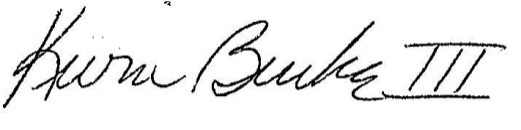 Kevin Burke III